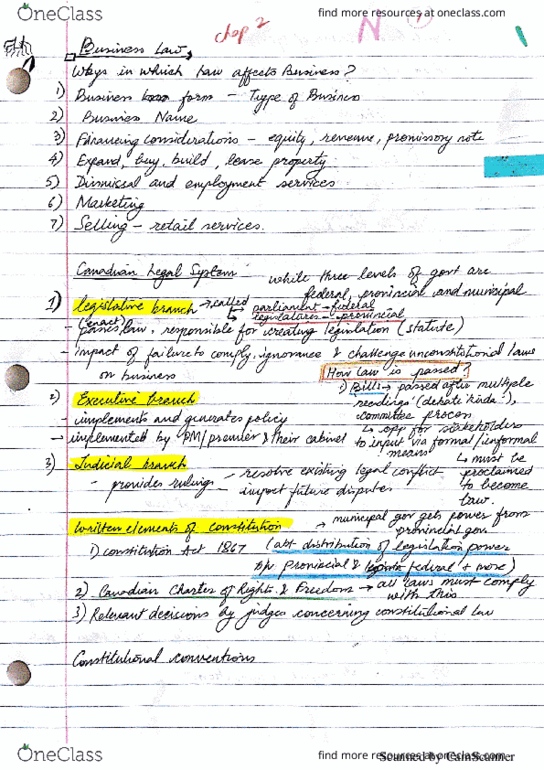 OneClass
find more resources at oneclass.com
find more resources at oneclass.com
chap 2
N
Business Law,
Ways in which Law affects Business?
1) Business form - Type of Business
2) Business Name
3) Financing considerations - equity, revenue, promissory note
4) Expand, buy, build, lease property
5) Dismissal and employment services
6) Marketing
7) Selling - retail services.
Canadian Legal System - while three levels of govt are
federal, provincial and municipal
1) legislative branch → called → parliament - federal
legislatures - provincial
(enact)
- passes law, responsible for creating legislation (statute)
- impact of failure to comply, ignorance & challenge unconstitutional laws
on business
How law is passed?
1) Bills → passed after multiple
readings (debate kinda),
committee process
↳ opp for stakeholders
to input via formal/informal
means
↳ must be
proclaimed
to become
law.
2) Executive branch
- implements and generates policy
→ implemented by PM/premier & their cabinet
3) Judicial branch
- provides rulings - resolve existing legal conflict
- impact future disputes
→ municipal gov gets power from
provincial gov.
Written elements of constitution
1) constitution Act 1867 (abt distribution of legislation power
b/w provincial & federal + more)
2) Canadian Charter of Rights & Freedom → all laws must comply
with this
3) Relevant decisions by judges concerning constitutional law
Constitutional conventions
OneClass
find more resources at oneclass.com
Scanned by CamScanner